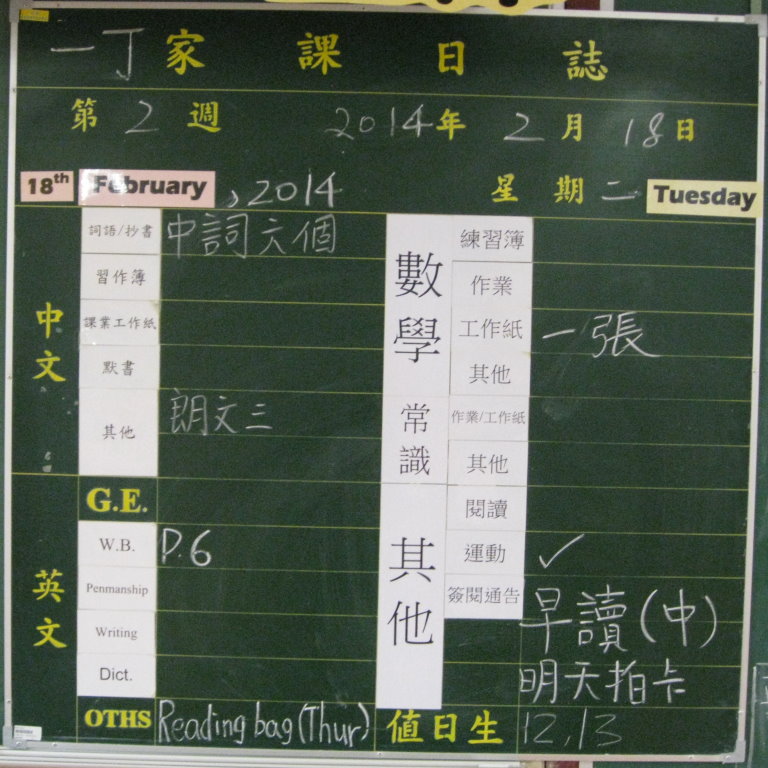 一丁家課日誌
第2週 2014年2月18日
18th February, 2014 星期二 Tuesday
中文
詞語/抄書 中詞六個
習作簿
課業工作紙
默書
其他 朗文三
英文
G.E.
W.B. P.6
Penmanship
Writing
Dict.
OTHS Reading bag (Thur)
數學
練習簿
作業
工作紙 一張
其他
常識
作業/工作紙
其他
其他
閱讀
運動 ✓
簽閱通告
早讀(中)
明天拍卡
值日生 12,13